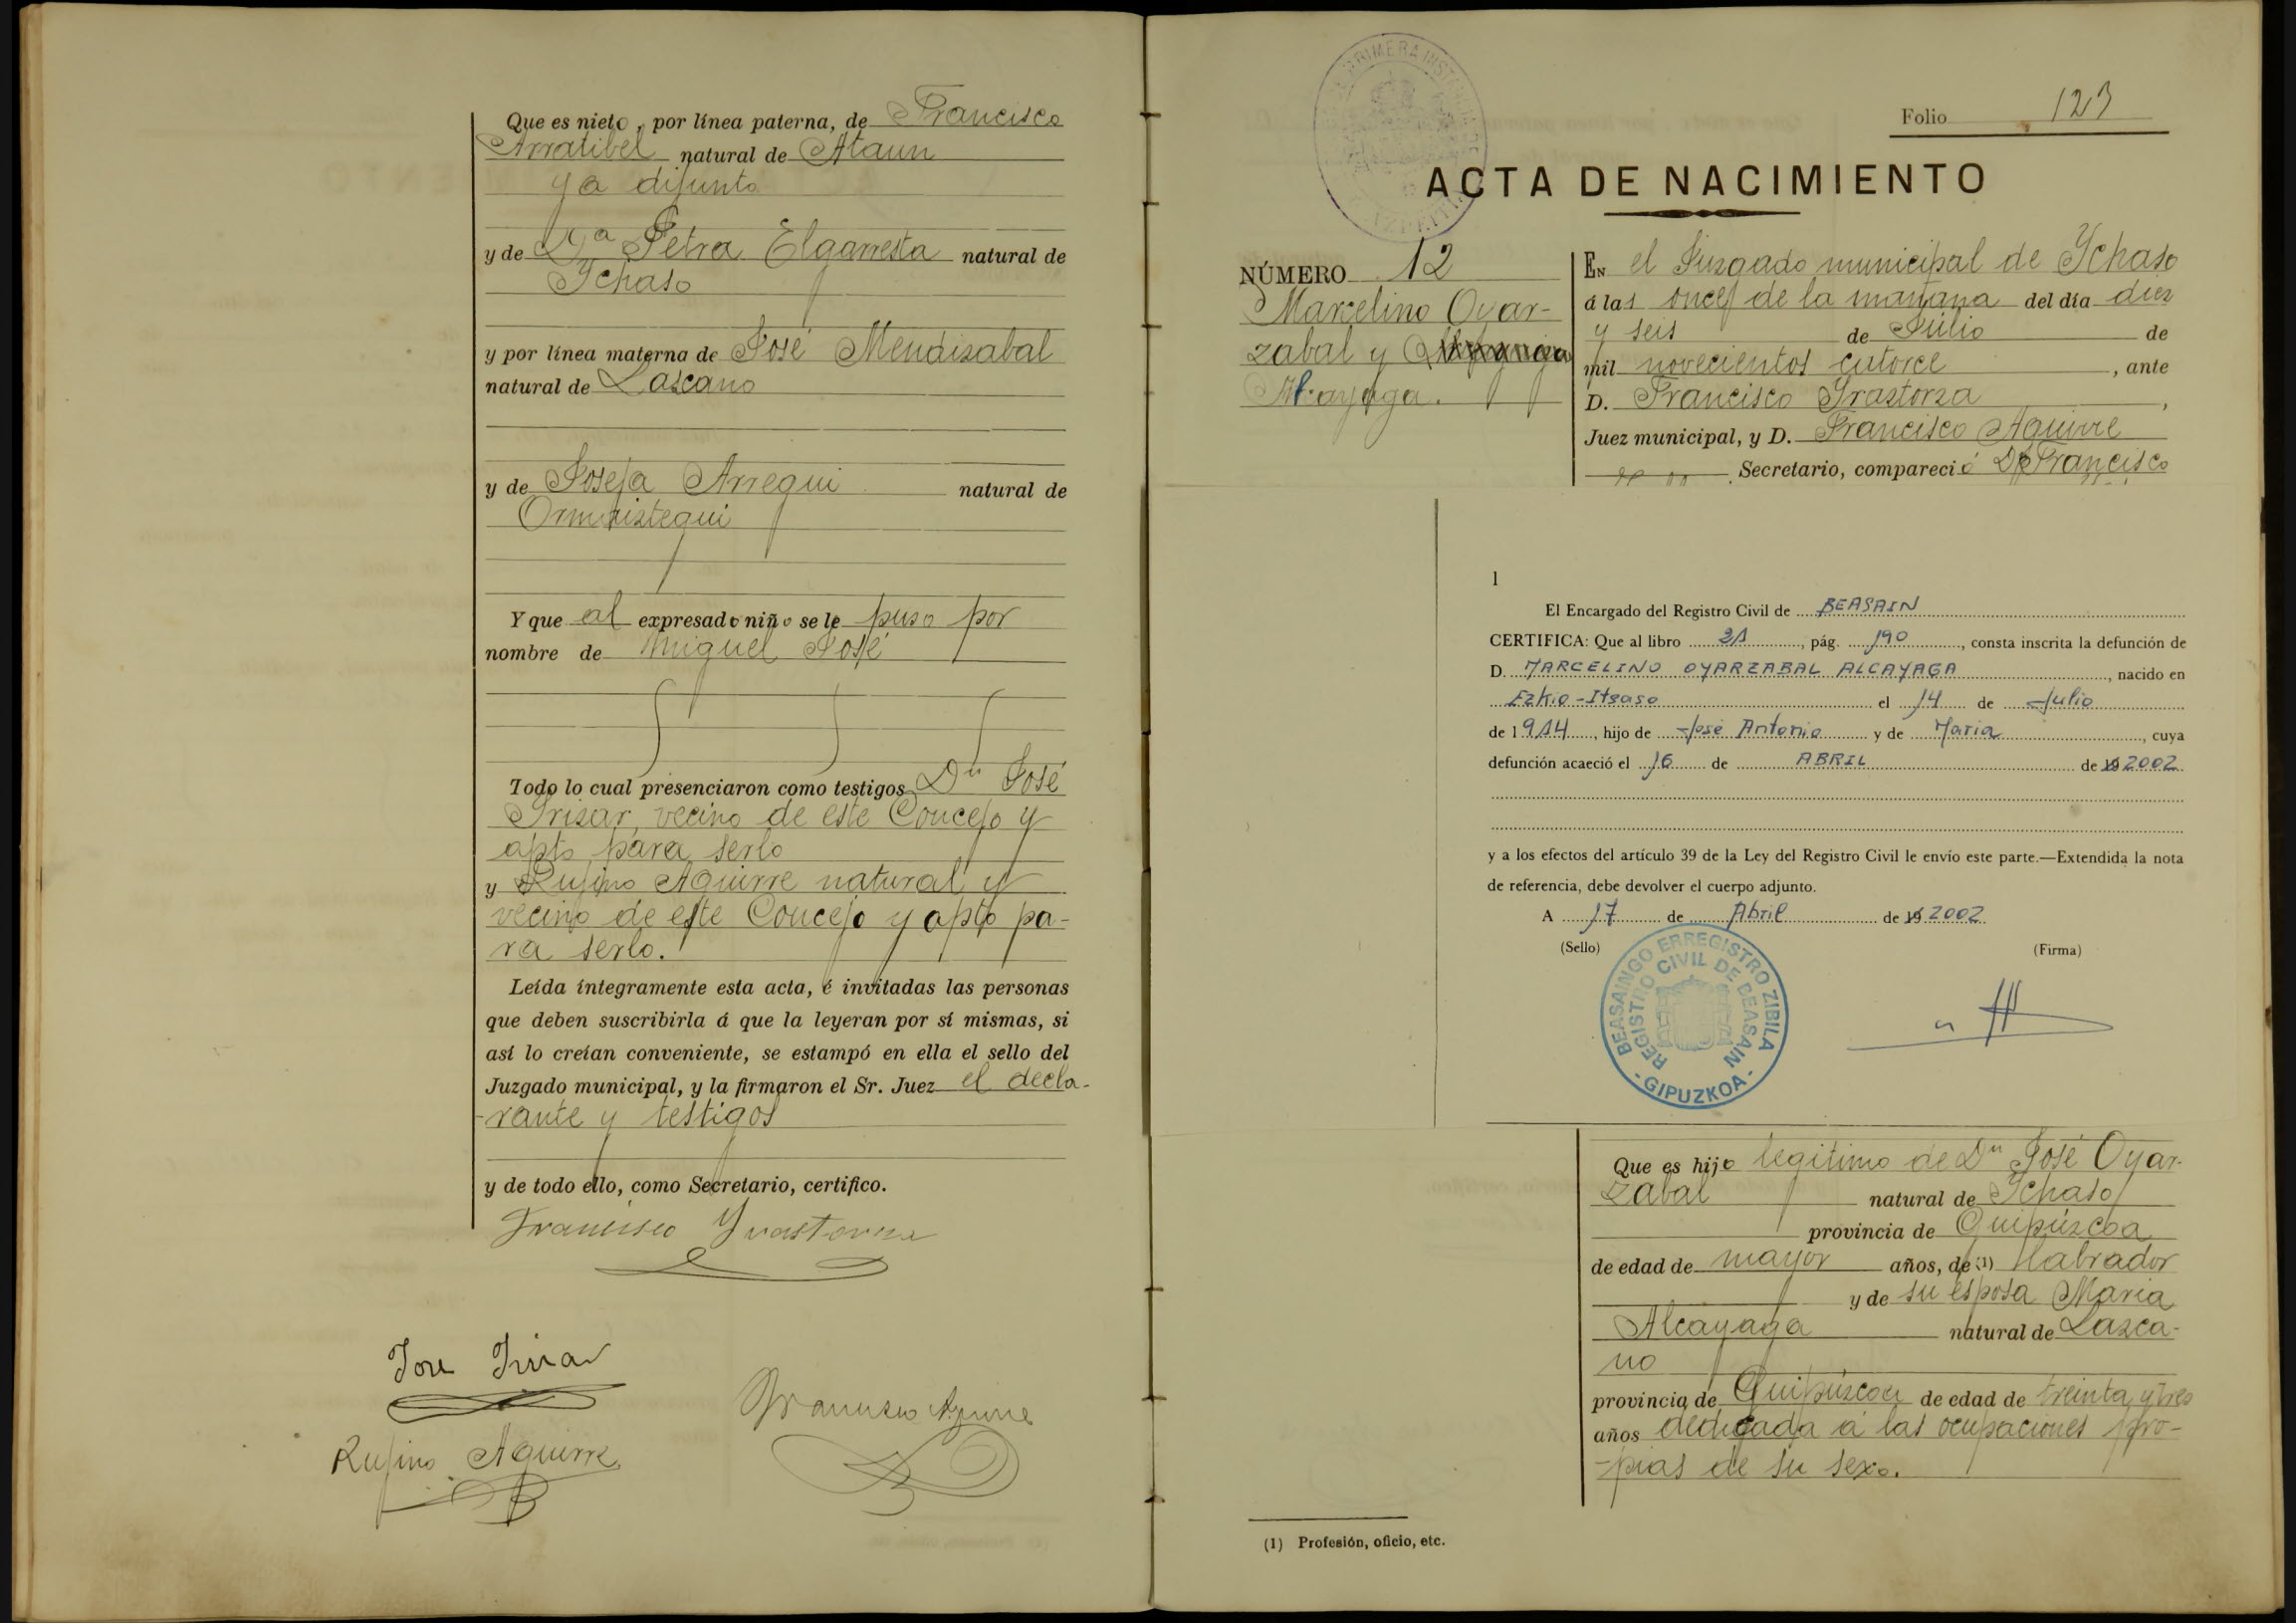 Que es nieto, por línea paterna, de Francisco
Arratibel natural de Ataun
ya difunto
y de Dª Petra Elgarresta natural de
Ychaso
y por línea materna de José Mendizabal
natural de Lazcano
y de Josefa Arregui natural de
Ormaiztegui
Y que al expresado niño se le puso por
nombre de Miguel José
Todo lo cual presenciaron como testigos Dn José
Irizar, vecino de este Concejo y
apto para serlo
y Rufino Aguirre natural y
vecino de este Concejo y apto pa-
ra serlo.
Leída íntegramente esta acta, é invitadas las personas
que deben suscribirla á que la leyeran por sí mismas, si
así lo creían conveniente, se estampó en ella el sello del
Juzgado municipal, y la firmaron el Sr. Juez el decla-
-rante y testigos
y de todo ello, como Secretario, certifico.
Francisco Yrastorza
Jose Irizar
Francisco Aguirre
Rufino Aguirre
Folio 123
ACTA DE NACIMIENTO
NÚMERO 12
Marcelino Oyar-
zabal y
Alcayaga.
EN el Juzgado municipal de Ychaso
á las once de la mañana del día diez
y seis de Julio de
mil novecientos catorce, ante
D. Francisco Yrastorza,
Juez municipal, y D. Francisco Aguirre
Secretario, compareció Dn Francisco
1
El Encargado del Registro Civil de BEASAIN
CERTIFICA: Que al libro 21, pág. 190, consta inscrita la defunción de
D. MARCELINO OYARZABAL ALCAYAGA, nacido en
Ezkio-Itsaso el 14 de Julio
de 1914, hijo de José Antonio y de Maria, cuya
defunción acaeció el 16 de ABRIL de 19 2002
y a los efectos del artículo 39 de la Ley del Registro Civil le envío este parte.—Extendida la nota
de referencia, debe devolver el cuerpo adjunto.
A 17 de Abril de 19 2002
(Sello) (Firma)
BEASAINGO ERREGISTRO ZIBILA
REGISTRO CIVIL DE BEASAIN
- GIPUZKOA -
Que es hijo legitimo de Dn José Oyar-
zabal natural de Ychaso
provincia de Guipúzcoa
de edad de mayor años, de (1) labrador
y de su esposa Maria
Alcayaga natural de Lazca-
no
provincia de Guipúzcoa de edad de treinta y tres
años dedicada á las ocupaciones pro-
-pias de su sexo.
(1) Profesión, oficio, etc.